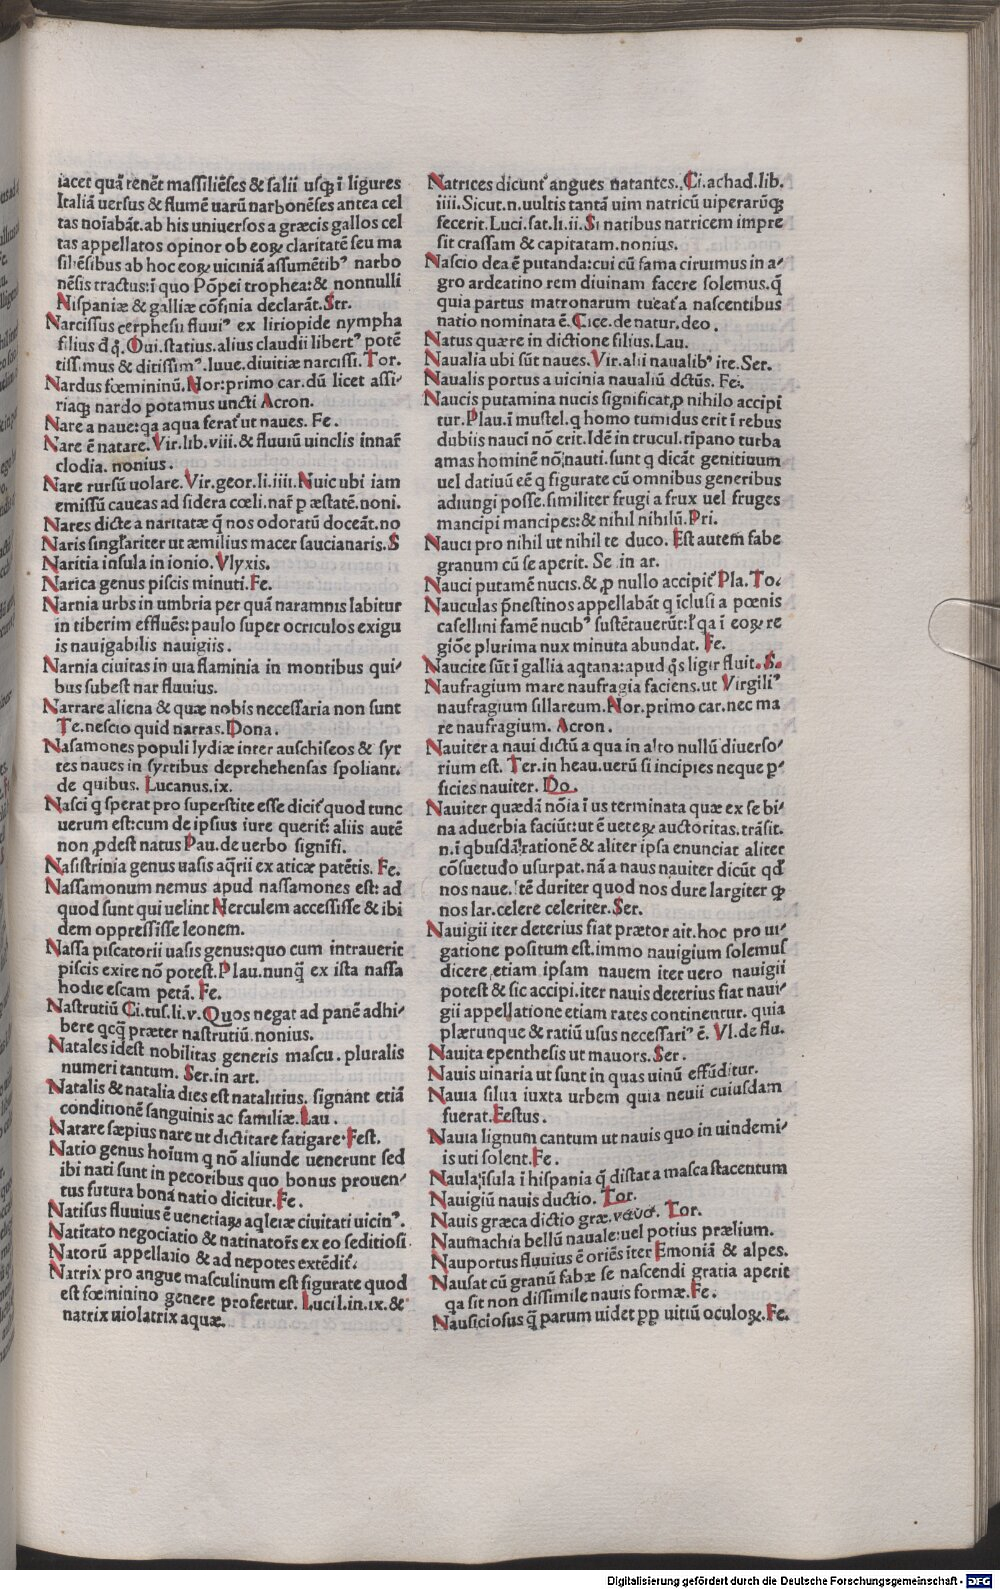 iacet quã tenẽt massiliẽses & salii usqȝ ĩ ligures
Italiã uersus & flumẽ uarũ narbonẽses antea cel
tas noĩabãt. ab his uniuersos a græcis gallos cel
tas appellatos opinor ob eoꝝ claritatẽ seu ma
siliẽsibus ab hoc eoꝝ uiciniã assumẽtibꝰ narbo
nẽsis tractus: ĩ quo Põpei trophea: & nonnulli
Hispaniæ & galliæ cõfinia declarãt. Str.
Narcissus cephesu fluuiꝰ ex liriopide nympha
filius đ q̃. Oui. statius. alius claudii libertꝰ potẽ
tissimus & ditissimꝰ. Iuue. diuitiæ narcissi. Tor.
Nardus fœmininũ. Hor: primo car. dũ licet assi⸗
riaqȝ nardo potamus uncti Acron.
Nare a naue: qa aqua ferat̃ ut naues. Fe.
Nare ẽ natare. Vir. lib. viii. & fluuiũ uinclis innar̃
clodia. nonius.
Nare rursũ uolare. Vir. geor. li. iiii. Huic ubi iam
emissũ caueas ad sidera cœli. nar̃ p æstatẽ. noni.
Nares dicte a naritatæ q̃ nos odoratũ doceãt. no
Naris singl̃ariter ut æmilius macer saucia naris. S
Naritia insula in ionio. Vlyxis.
Narica genus piscis minuti. Fe.
Narnia urbs in umbria per quã naramnis labitur
in tiberim effluẽs: paulo super ocriculos exigu
is nauigabilis nauigiis.
Narnia ciuitas in uia flaminia in montibus qui⸗
bus subest nar fluuius.
Narrare aliena & quæ nobis necessaria non sunt
Te. nescio quid narras. Dona.
Nasamones populi lydiæ inter auschiseos & syr
tes naues in syrtibus deprehehensas spoliant.
de quibus. Lucanus. ix.
Nasci q sperat pro superstite esse dicit̃ quod tunc
uerum est: cum de ipsius iure querit̃: aliis autẽ
non ꝓdest natus Pau. de uerbo signifi.
Nasistrinia genus uasis aq̃rii ex aticæ patẽtis. Fe.
Nassamonum nemus apud nassamones est: ad
quod sunt qui uelint Herculem accessisse & ibi
dem oppressisse leonem.
Nassa piscatorii uasis genus: quo cum intrauerit
piscis exire nõ potest. Plau. nunq̃ ex ista nassa
hodie escam petã. Fe.
Nastrutiũ Ci. tus. li. v. Quos negat ad panẽ adhi⸗
bere qcq̃ præter nastrutiũ. nonius.
Natales idest nobilitas generis mascu. pluralis
numeri tantum. Ser. in art.
Natalis & natalia dies est natalitius. signant etiã
conditionẽ sanguinis ac familiæ. Lau.
Natare sæpius nare ut dictitare fatigare. Fest.
Natio genus hoĩum q nõ aliunde uenerunt sed
ibi nati sunt in pecoribus quo bonus prouen⸗
tus futura bona natio dicitur. Fe.
Natisus fluuius ẽ uenetiaꝝ aqleiæ ciuitati uicinꝰ.
Natitato negociatio & natinator̃s ex eo seditiosi
Natorũ appellatio & ad nepotes extẽdit̃.
Natrix pro angue masculinum est figurate quod
est fœminino genere profertur. Lucil. in. ix. &
natrix uiolatrix aquæ.
Natrices dicunt̃ angues natantes. Ci. achad. lib.
iiii. Sicut. n. uultis tantã uim natricũ uiperarũqȝ
fecerit. Luci. sat. li. ii. Si natibus natricem impre
sit crassam & capitatam. nonius.
Nascio dea ẽ putanda: cui cũ fama circuimus in a⸗
gro ardeatino rem diuinam facere solemus. q̃
quia partus matronarum tueat̃ a nascentibus
natio nominata ẽ. Cice. de natur. deo.
Natus quære in dictione filius. Lau.
Naualia ubi sũt naues. Vir. alii naualibꝰ ire. Ser.
Naualis portus a uicinia naualiũ dctũs. Fe.
Naucis putamina nucis significat, ꝓ nihilo accipi
tur. Plau. ĩ mustel. q homo tumidus erit ĩ rebus
dubiis nauci nõ erit. Idẽ in trucul. tĩpano turba
amas hominẽ nõ nauti. sunt q dicãt genitiuum
uel datiuũ eẽ q figurate cũ omnibus generibus
adiungi posse. similiter frugi a frux uel fruges
mancipi mancipes: & nihil nihilũ. Pri.
Nauci pro nihil ut nihil te duco. Est autem̃ fabe
granum cũ se aperit. Se in ar.
Nauci putamẽ nucis. & ꝓ nullo accipit̃ Pla. To.
Nauculas p̃nestinos appellabãt q ĩclusi a pœnis
casellini famẽ nucibꝰ sustẽtauerũt: l̃ qa ĩ eoꝝ re
giõe plurima nux minuta abundat. Fe.
Naucite sũt ĩ gallia aqtana: apud q̃s ligir fluit. S.
Naufragium mare naufragia faciens. ut Virgiliꝰ
naufragium sillareum. Hor. primo car. nec ma
re naufragium. Acron.
Nauiter a naui dictũ a qua in alto nullũ diuerso⸗
rium est. Ter. in heau. uerũ si incipies neque ꝑ⸗
ficies nauiter. Do.
Nauiter quædã nõia ĩ us terminata quæ ex se bi⸗
na aduerbia faciũt: ut ẽ ueteꝝ auctoritas. trãsit.
n. ĩ qbusdã rationẽ & aliter ipsa enunciat aliter
cõsuetudo usurpat. nã a naus nauiter dicũt qđ
nos naue. itẽ duriter quod nos dure largiter qȝ
nos lar. celere celeriter. Ser.
Nauigii iter deterius fiat prætor ait. hoc pro ui⸗
gatione positum est. immo nauigium solemus
dicere etiam ipsam nauem iter uero nauigii
potest & sic accipi. iter nauis deterius fiat naui⸗
gii appellatione etiam rates continentur. quia
plærunque & ratiũ usus necessariꝰ ẽ. Vl. de flu.
Nauita epenthesis ut mauors. Ser.
Nauis uinaria ut sunt in quas uinũ effũditur.
Nauia silua iuxta urbem quia neuii cuiusdam
fuerat. Festus.
Nauia lignum cantum ut nauis quo in uindemi⸗
is uti solent. Fe.
Naula ĩsula ĩ hispania q̃ distat a masca stacentum
Nauigiũ nauis ductio. Tor.
Nauis græca dictio græ. ναυσ. Tor.
Naumachia bellũ nauale: uel potius prælium.
Nauportus fluuius ẽ oriẽs iter Emoniã & alpes.
Nausat cũ granũ fabæ se nascendi gratia aperit
qa sit non dissimile nauis formæ. Fe.
Nausiciosus q̃ parum uidet ꝓp uitiũ oculoꝝ. Fe.
Digitalisierung gefördert durch die Deutsche Forschungsgemeinschaft - DFG